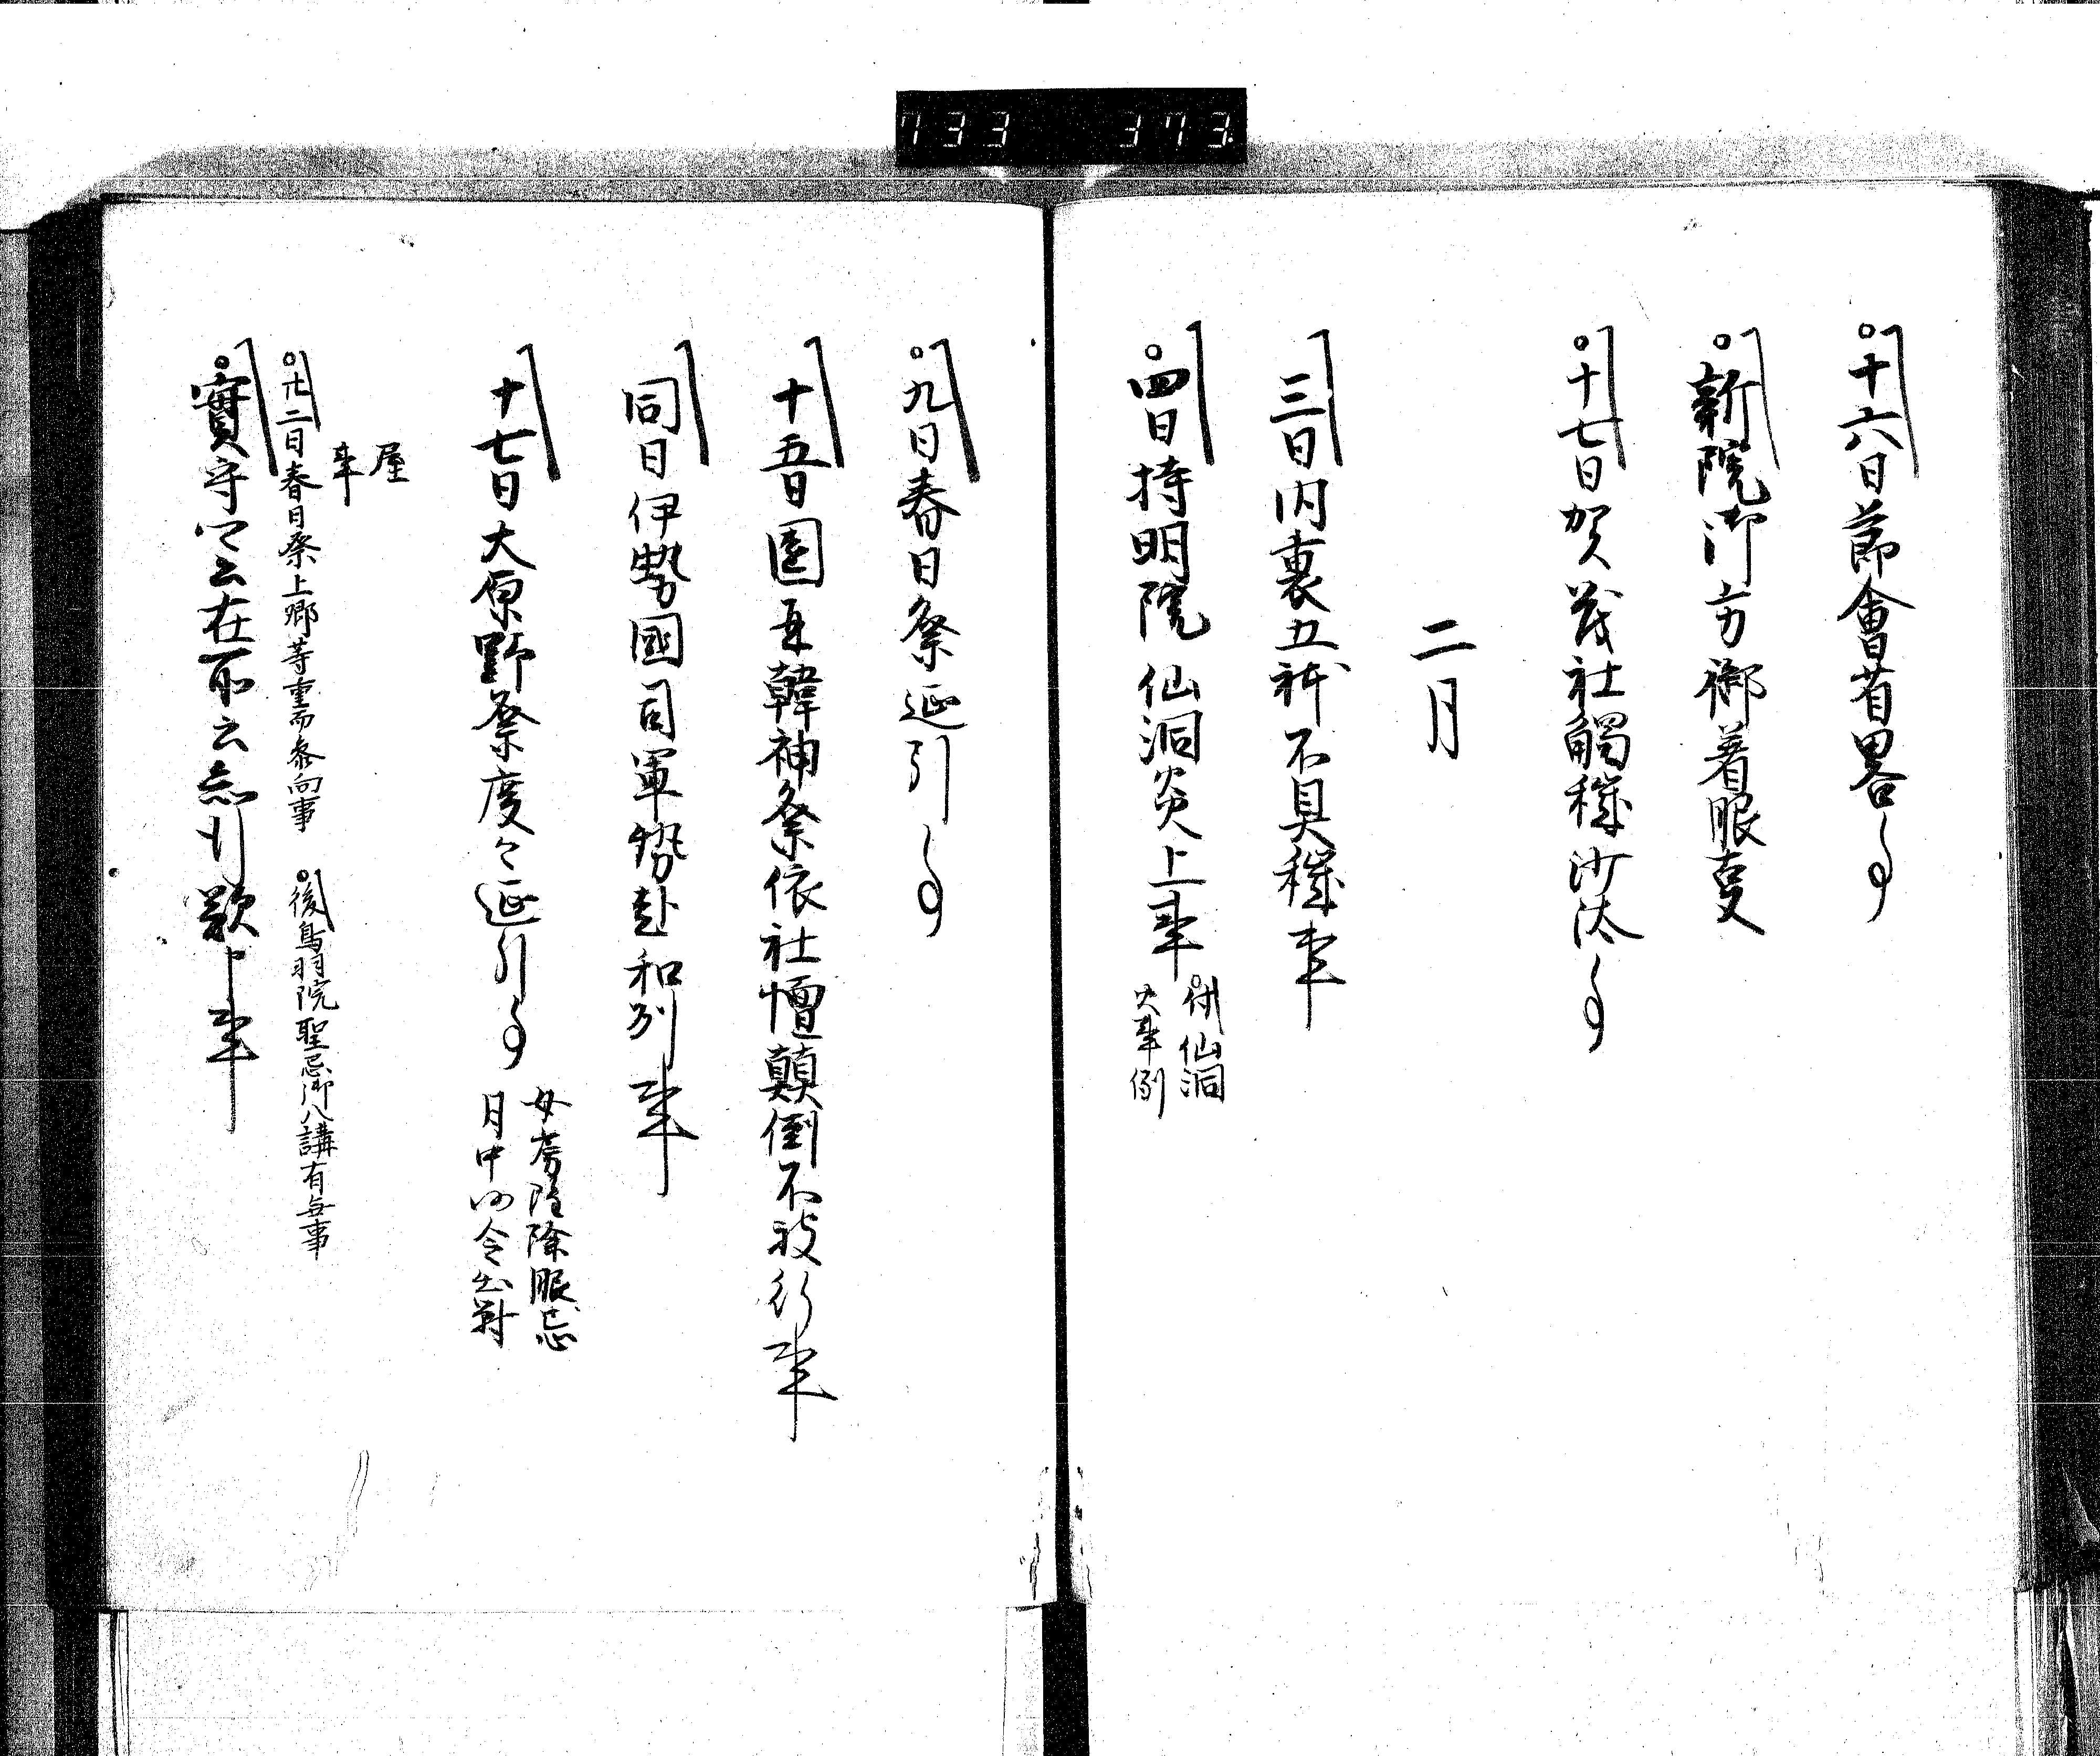 733 373
十六日節會省畧事
新院御方御着服事
十七日賀茂社觸穢沙汰事
二月
三日内裏五躰不具穢事
四日持明院仙洞炎上事
併仙洞
火事例
九日春日祭延引事
十五日園并韓神祭依社壇顛倒不被行事
同日伊勢國司軍勢赴和州事
十七日大原野祭度々延引事
女房障除服忌
月中可令出對
屋
事
廿二日春日祭上卿等重而參向事
後鳥羽院聖忌御八講有無事
實守公云在所云忩劇歎申事